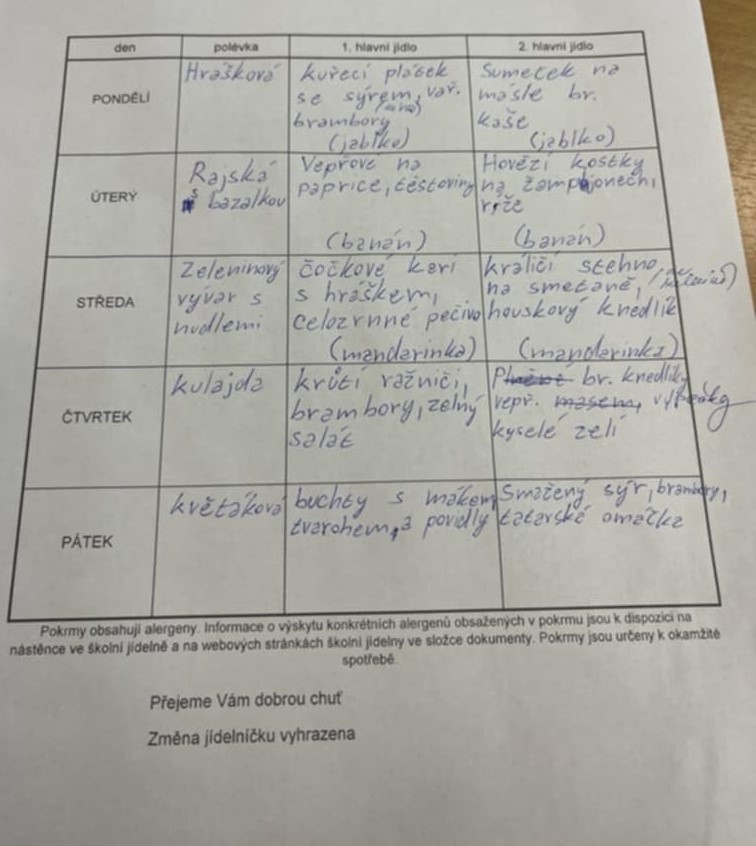 den polévka 1. hlavní jídlo 2. hlavní jídlo
PONDĚLÍ
Hrášková
kuřecí plátek
se sýrem, vař.
brambory
(jablko)
Sumeček na
másle br.
kaše
(jablko)
ÚTERÝ
Rajská
s bazalkou
Vepřové na
paprice, těstoviny
(banán)
Hovězí kostky
na žampionech,
rýže
(banán)
STŘEDA
Zeleninový
vývar s
nudlemi
čočkové kari
s hráškem,
celozrnné pečivo
(mandarinka)
králičí stehno
na smetaně,
houskový knedlík
(mandarinka)
ČTVRTEK
kulajda
krůtí ražniči,
brambory, zelný
salát
br. knedlíky
vepř. masem,
kyselé zelí
PÁTEK
květáková
buchty s mákem
tvarohem, a povidly
Smažený sýr, brambory,
tatarské omačka
Pokrmy obsahují alergeny. Informace o výskytu konkrétních alergenů obsažených v pokrmu jsou k dispozici na
nástěnce ve školní jídelně a na webových stránkách školní jídelny ve složce dokumenty. Pokrmy jsou určeny k okamžité
spotřebě.
Přejeme Vám dobrou chuť
Změna jídelníčku vyhrazena